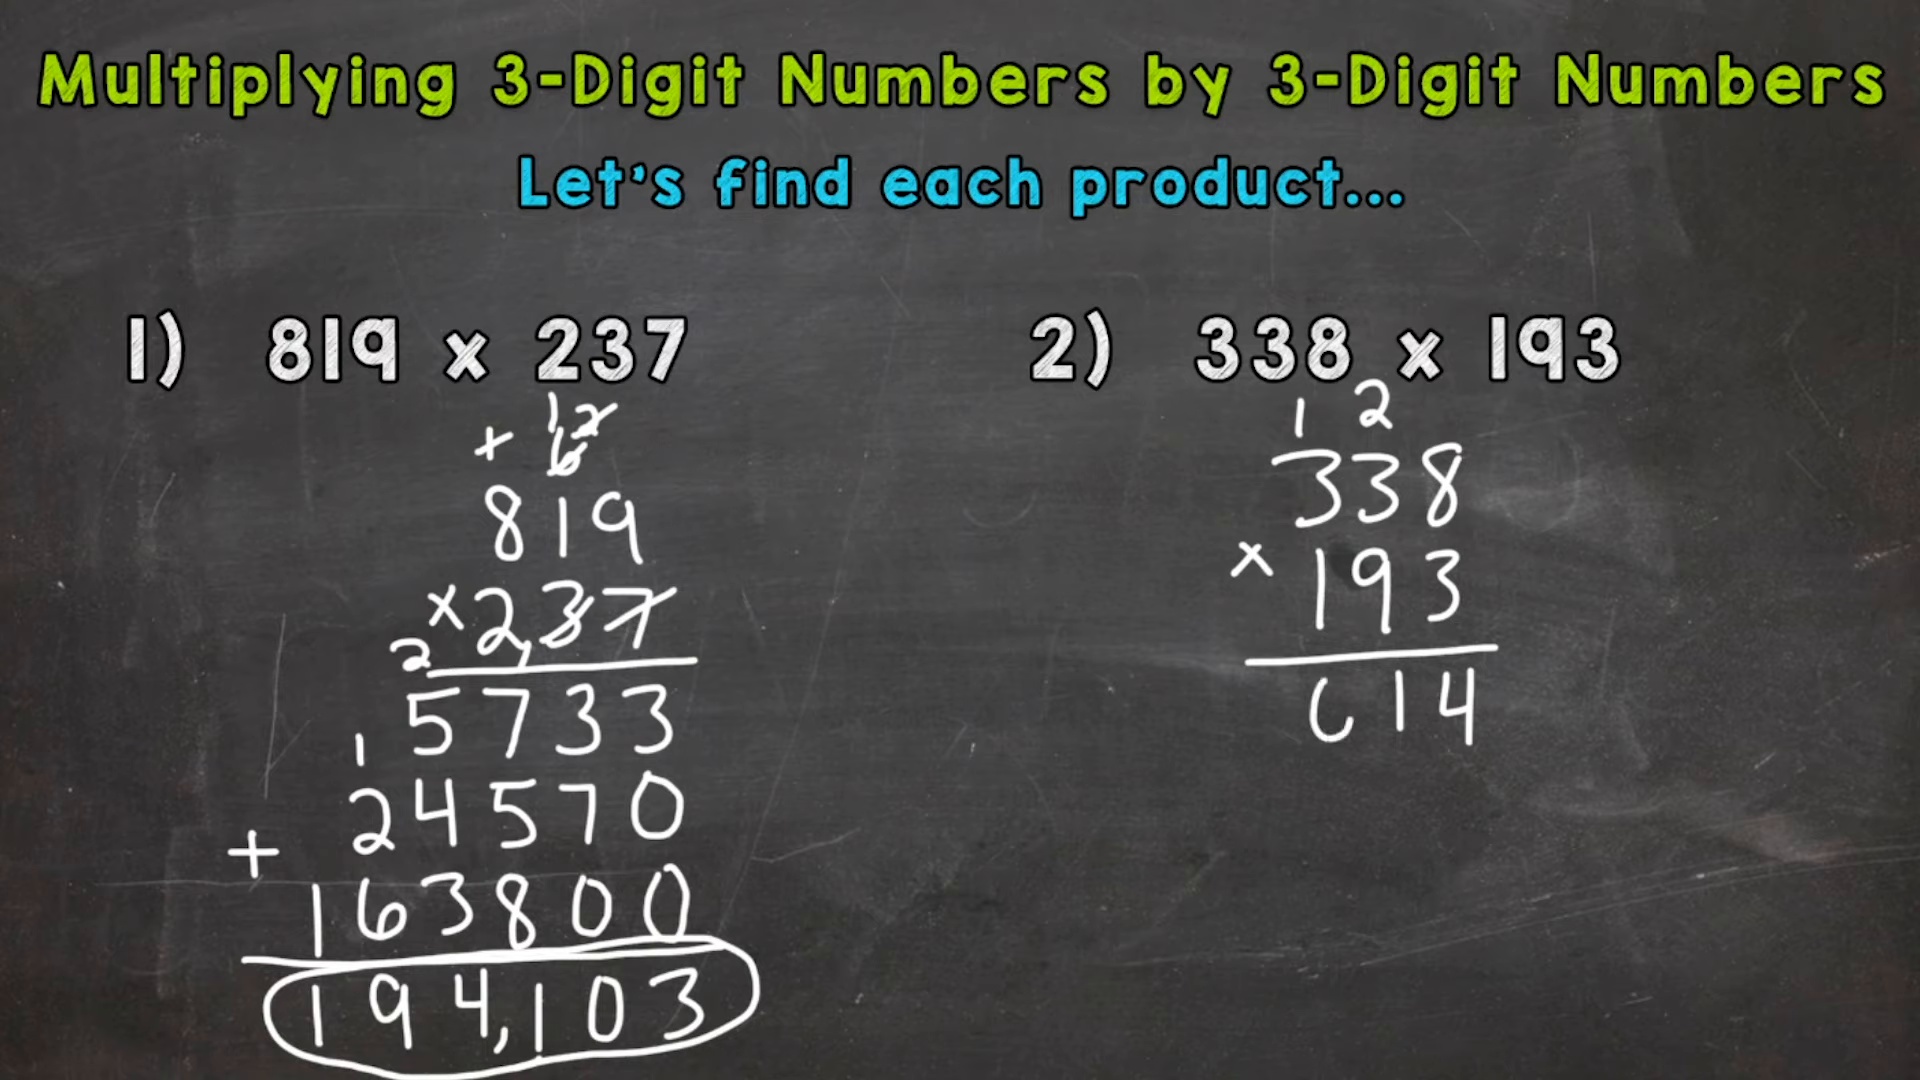 Multiplying 3-Digit Numbers by 3-Digit Numbers
Let's find each product...
1) 819 x 237
1 2
+ 6
819
x 2,37
2
5733
1
24570
+
163800
194,103
2) 338 x 193
1 2
338
x 193
614